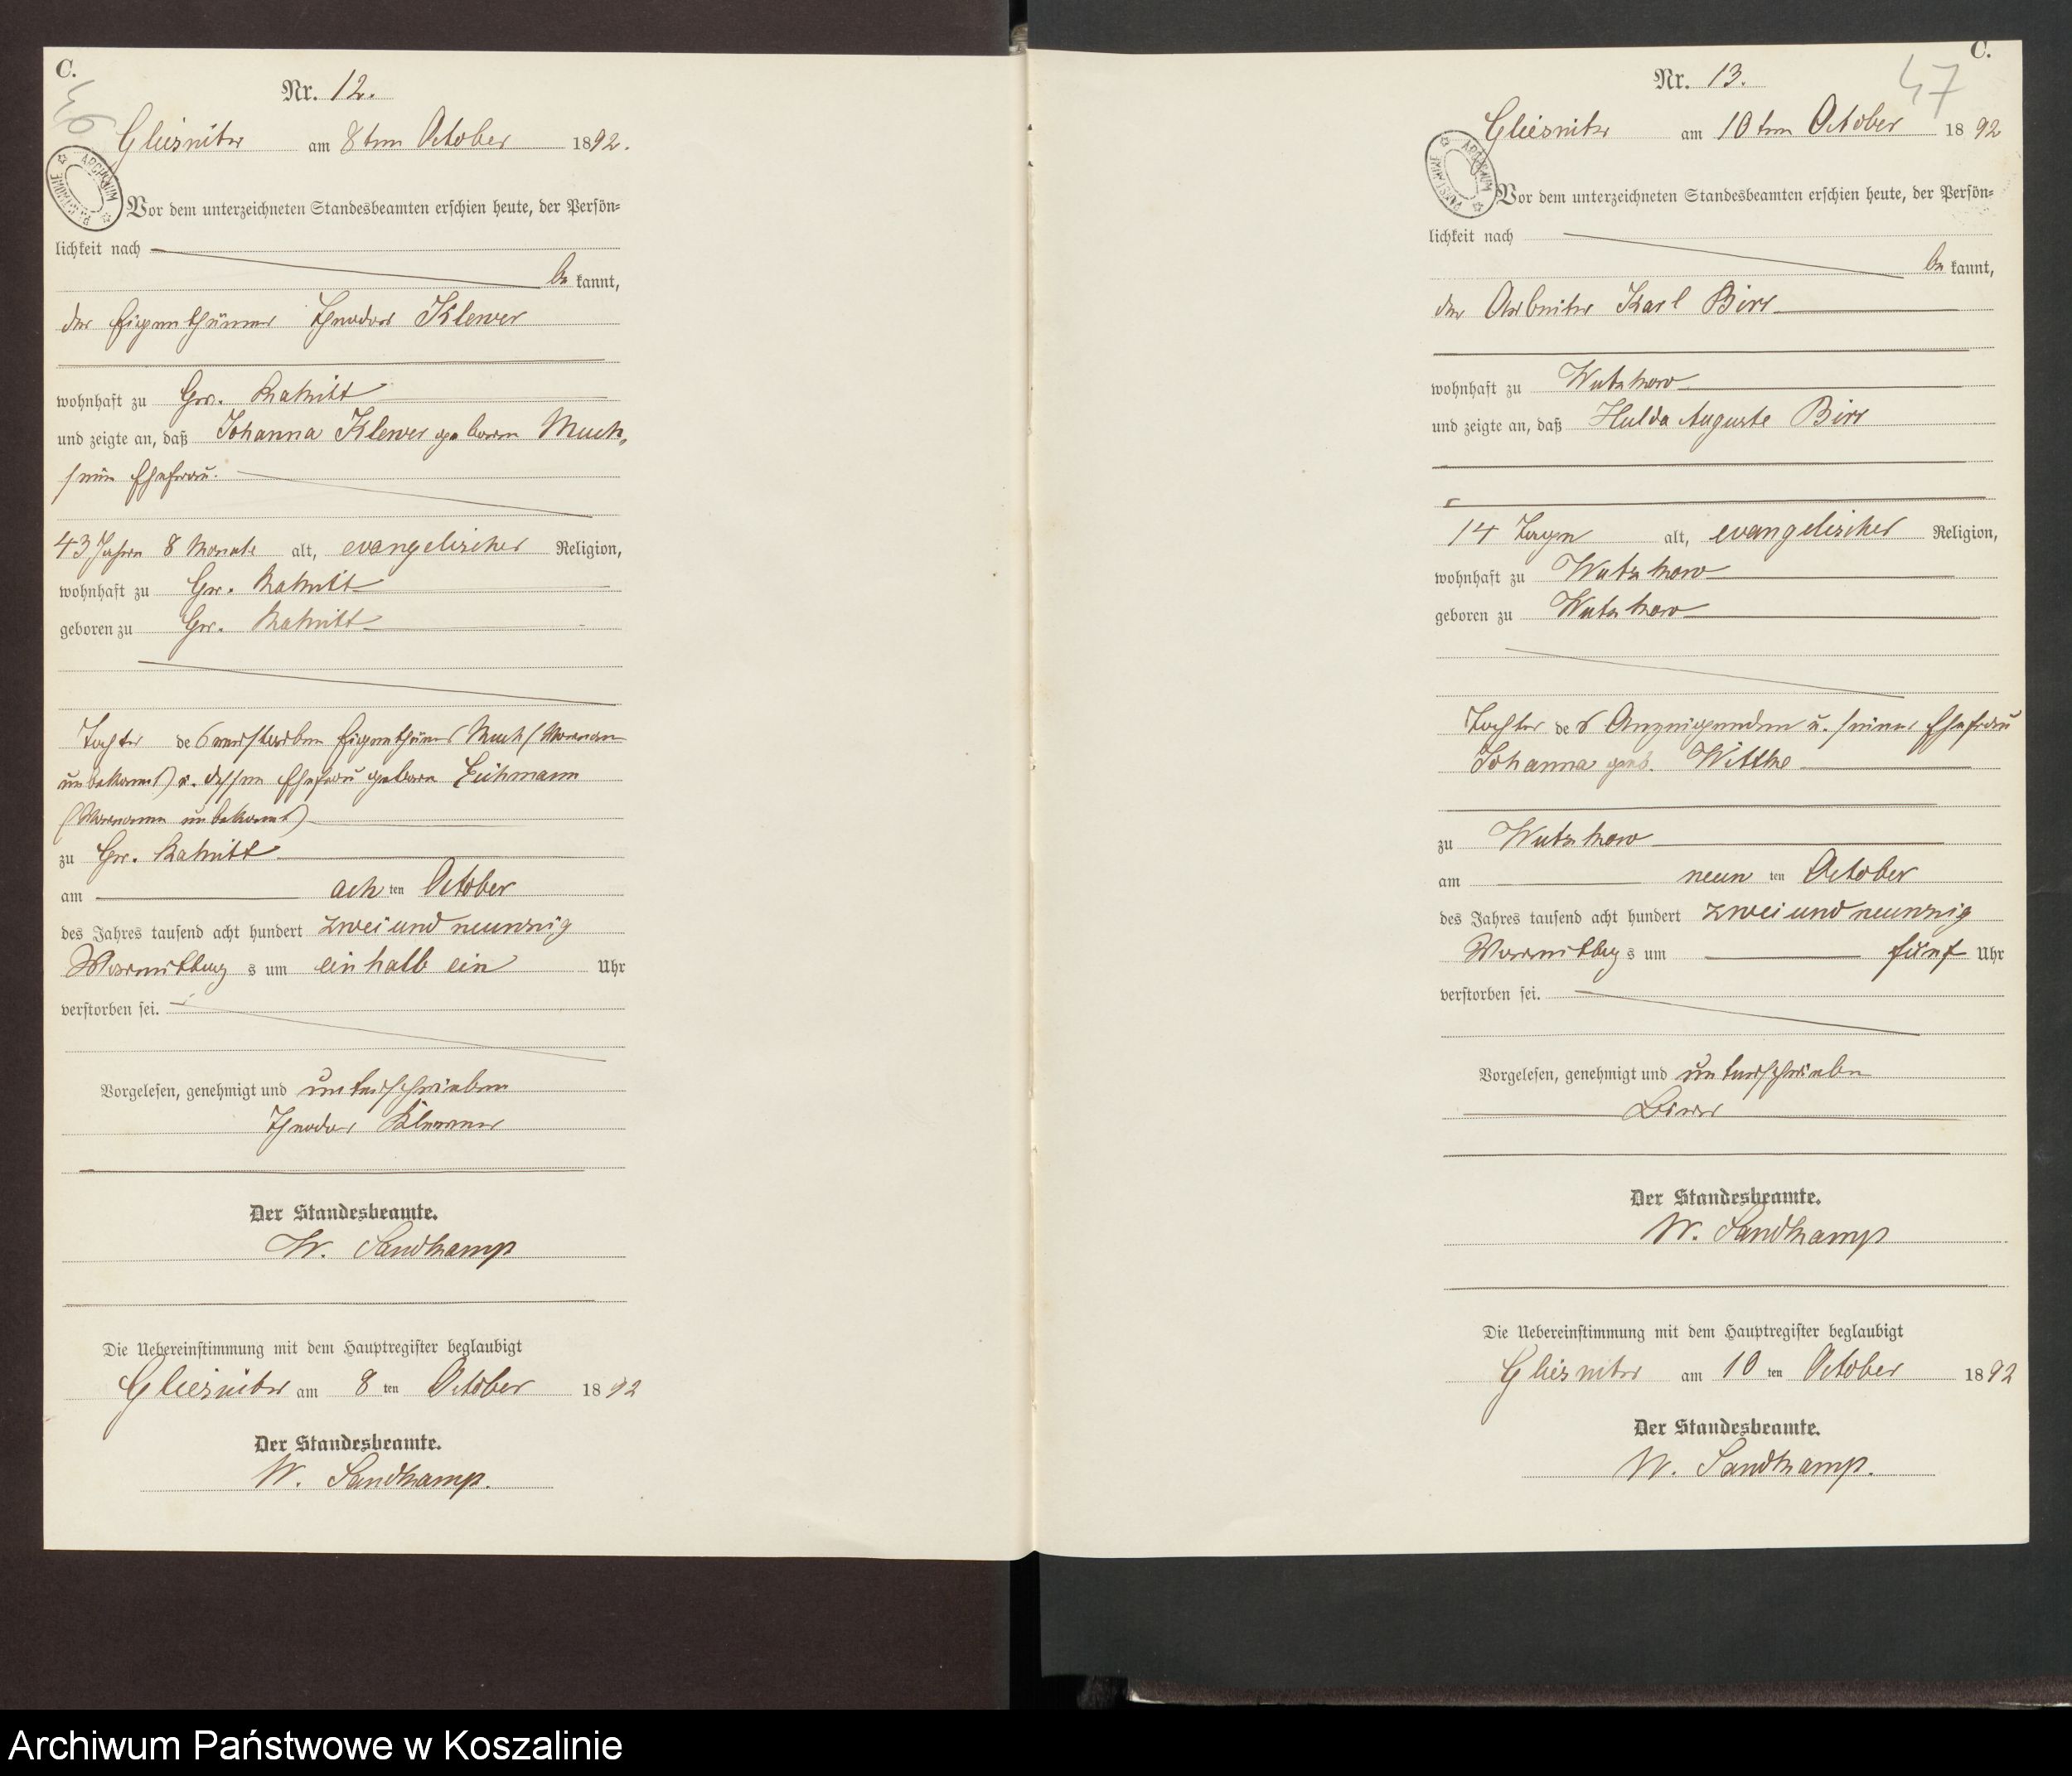 C.
46
Nr. 12.
Gliesnitz am 8ten October 1892.
ARCHIWUM PAŃSTWOWE
Vor dem unterzeichneten Standesbeamten erschien heute, der Persön-
lichkeit nach
be kannt,
der Eigenthümer Theodor Klewer
wohnhaft zu Gr. Rakitt
und zeigte an, daß Johanna Klewer geborne Much,
seine Ehefrau.
43 Jahre 8 Monate alt, evangelischer Religion,
wohnhaft zu Gr. Rakitt
geboren zu Gr. Rakitt
Tochter des verstorbenen Eigenthümers Much (Vorname
unbekannt) u. dessen Ehefrau geborne
(Vorname unbekannt)
zu Gr. Rakitt
am ach ten October
des Jahres tausend acht hundert zwei und neunzig
Vormittag s um ein halb ein Uhr
verstorben sei.
Vorgelesen, genehmigt und unterschrieben
Theodor Klewer
Der Standesbeamte.
W. Sandkamp
Die Uebereinstimmung mit dem Hauptregister beglaubigt
Gliesnitz am 8 ten October 1892
Der Standesbeamte.
W. Sandkamp.
C.
47
Nr. 13.
Gliesnitz am 10ten October 1892
ARCHIWUM PAŃSTWOWE
Vor dem unterzeichneten Standesbeamten erschien heute, der Persön-
lichkeit nach
be kannt,
der Arbeiter Karl Birr
wohnhaft zu Wutzkow
und zeigte an, daß Hulda Auguste Birr
14 Tagen alt, evangelischer Religion,
wohnhaft zu Wutzkow
geboren zu Wutzkow
Tochter des Anzeigenden u. seiner Ehefrau
Johanna geb. Witthe
zu Wutzkow
am neun ten October
des Jahres tausend acht hundert zwei und neunzig
Vormittag s um fünf Uhr
verstorben sei.
Vorgelesen, genehmigt und unterschrieben
Birr
Der Standesbeamte.
W. Sandkamp
Die Uebereinstimmung mit dem Hauptregister beglaubigt
Gliesnitz am 10 ten October 1892
Der Standesbeamte.
W. Sandkamp.
Archiwum Państwowe w Koszalinie